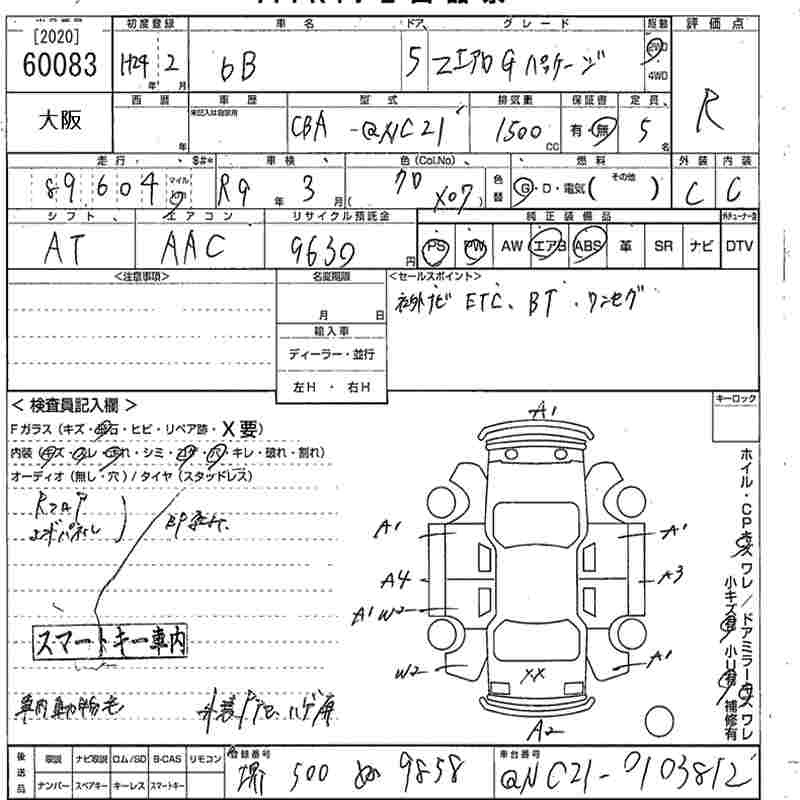 [2020]
60083
大阪
初度登録 車名 ドア グレード 駆動 評価点
H24 年 2 月 bB 5 ZエアロGパッケージ 2WD 4WD R
西暦 車歴 型式 排気量 保証書 定員
年 未記入は自家用 CBA-QNC21 1500 CC 有・無 5 名
走行 車検 色(Col.No) 燃料 外装 内装
89604 マイル R9 年 3 月 クロ X07 色替 G・D・電気( その他 ) C C
シフト エアコン リサイクル預託金 純正装備品
AT AAC 9630 円 PS PW AW エアB ABS 革 SR ナビ DTV
<注意事項> 名変期限 <セールスポイント>
月 日 社外ナビ ETC、BT、ワンセグ
輸入車
ディーラー・並行
左H・右H
<検査員記入欄> キーロック
Fガラス(キズ・飛石・ヒビ・リペア跡・X要)
内装(キズ・スレ・汚れ・シミ・コゲ・穴・キレ・破れ・割れ)
オーディオ(無し・穴)/タイヤ(スタッドレス)
Rフロア
エンドパネル
スマートキー車内
車内動物毛
A1
A1 A1
A4 A3
A1 W2
W2 A1
XX
A2
ホイル・CPキズ ワレ/ドアミラーキズ ワレ
小キズ有 小U有 補修有
後送品 取説 ナビ取説 ロム/SD B-CAS リモコン 登録番号 車台番号
ナンバー スペアキー キーレス スマートキー 堺 500 ぬ 9858 QNC21-0103812